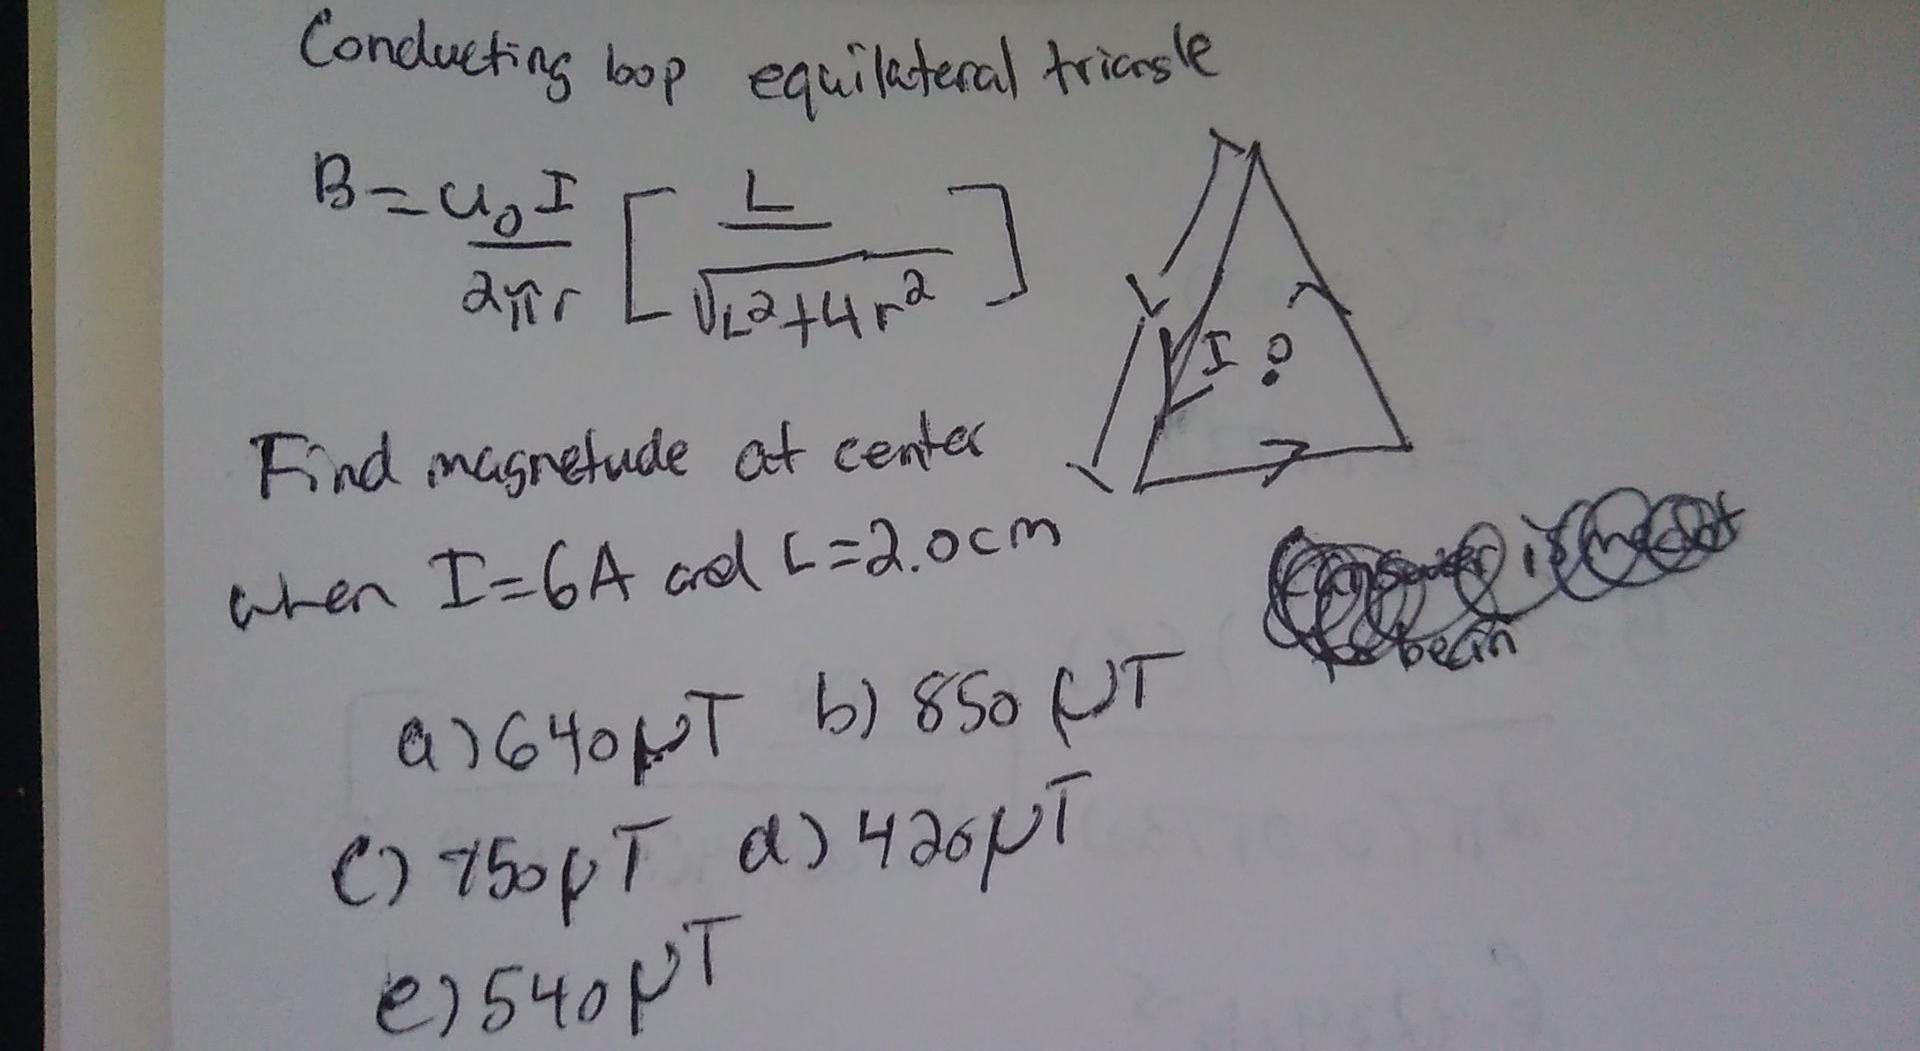 Conducting loop equilateral triangle
B = u₀I / 2πr [ L / √L²+4r² ]
L
I
Find magnetude at center
when I=6A and L=2.0cm
a) 640μT b) 850μT
c) 750μT d) 420μT
e) 540μT